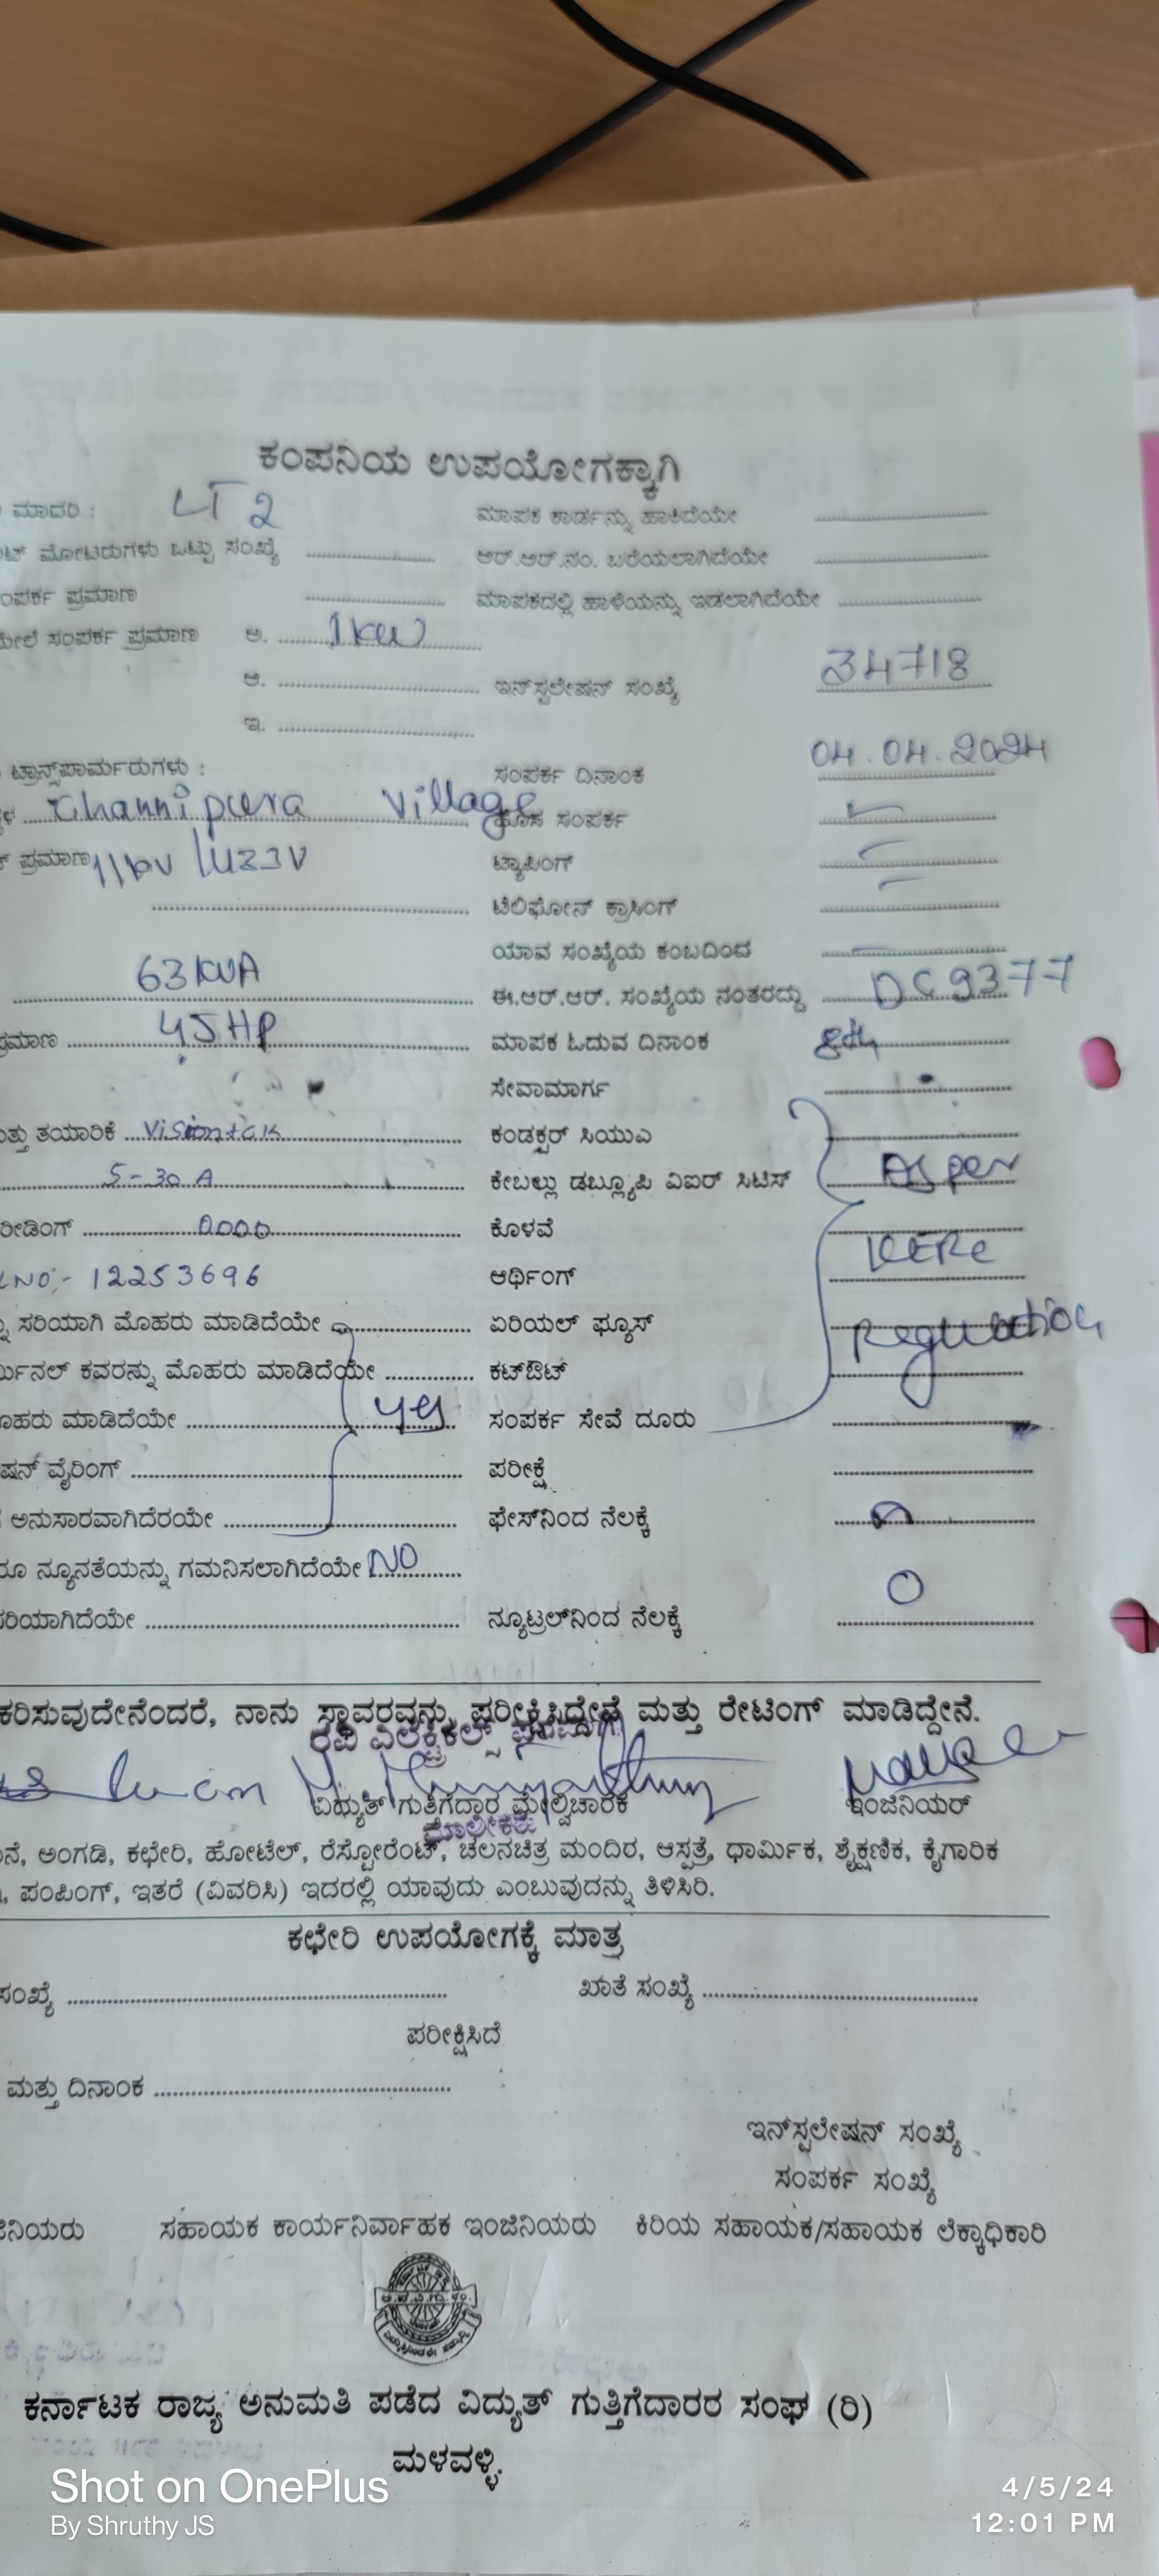 ಕಂಪನಿಯ ಉಪಯೋಗಕ್ಕಾಗಿ
ಮಾದರಿ : LT 2 ಮಾಪಕ ಕಾರ್ಡನ್ನು ಹಾಕಿದೆಯೇ
ಮೋಟರುಗಳು ಒಟ್ಟು ಸಂಖ್ಯೆ ಆರ್.ಆರ್.ನಂ. ಬರೆಯಲಾಗಿದೆಯೇ
ಪ್ರಮಾಣ ಮಾಪಕದಲ್ಲಿ ಹಾಳೆಯನ್ನು ಇಡಲಾಗಿದೆಯೇ
ಸಂಪರ್ಕ ಪ್ರಮಾಣ ಅ. 1kw
ಆ. ಇನ್‌ಸ್ಟಲೇಷನ್ ಸಂಖ್ಯೆ 34718
ಇ.
ಟ್ರಾನ್ಸ್‌ಫಾರ್ಮರುಗಳು : ಸಂಪರ್ಕ ದಿನಾಂಕ 04.04.2024
Channipura Village ಹೊಸ ಸಂಪರ್ಕ
ಪ್ರಮಾಣ 11kv ಟ್ಯಾಪಿಂಗ್
ಟೆಲಿಫೋನ್ ಕ್ರಾಸಿಂಗ್
ಯಾವ ಸಂಖ್ಯೆಯ ಕಂಬದಿಂದ
63 KVA ಈ.ಆರ್.ಆರ್. ಸಂಖ್ಯೆಯ ನಂತರದ್ದು DC9377
45HP ಮಾಪಕ ಓದುವ ದಿನಾಂಕ 8th
ಸೇವಾಮಾರ್ಗ
ತಯಾರಿಕೆ Visiontek ಕಂಡಕ್ಟರ್ ಸಿಯುಎ
5-30 A ಕೇಬಲ್ಲು ಡಬ್ಲ್ಯೂಪಿ ವಿಐರ್ ಸಿಟಿಸ್ As per
ರೀಡಿಂಗ್ 0000 ಕೊಳವೆ KERC
NO:- 12253696 ಆರ್ಥಿಂಗ್
ಸರಿಯಾಗಿ ಮೊಹರು ಮಾಡಿದೆಯೇ ಏರಿಯಲ್ ಫ್ಯೂಸ್ Regulation
ಕವರನ್ನು ಮೊಹರು ಮಾಡಿದೆಯೇ ಕಟ್‌ಔಟ್
ಮಾಡಿದೆಯೇ yes ಸಂಪರ್ಕ ಸೇವೆ ದೂರು
ವೈರಿಂಗ್ ಪರೀಕ್ಷೆ
ಅನುಸಾರವಾಗಿದೆರಯೇ ಫೇಸ್‌ನಿಂದ ನೆಲಕ್ಕೆ
ನ್ಯೂನತೆಯನ್ನು ಗಮನಿಸಲಾಗಿದೆಯೇ NO
ನ್ಯೂಟ್ರಲ್‌ನಿಂದ ನೆಲಕ್ಕೆ 0
ನಾನು ಸ್ಥಾವರವನ್ನು ಪರೀಕ್ಷಿಸಿದ್ದೇನೆ ಮತ್ತು ರೇಟಿಂಗ್ ಮಾಡಿದ್ದೇನೆ.
ರವಿ ಎಲೆಕ್ಟ್ರಿಕಲ್ಸ್
ವಿದ್ಯುತ್ ಗುತ್ತಿಗೆದಾರ ಮೇಲ್ವಿಚಾರಕ ಇಂಜಿನಿಯರ್
ಮಾಲೀಕರು
ಅಂಗಡಿ, ಕಛೇರಿ, ಹೋಟೆಲ್, ರೆಸ್ಟೋರೆಂಟ್, ಚಲನಚಿತ್ರ ಮಂದಿರ, ಆಸ್ಪತ್ರೆ, ಧಾರ್ಮಿಕ, ಶೈಕ್ಷಣಿಕ, ಕೈಗಾರಿಕ
ಪಂಪಿಂಗ್, ಇತರೆ (ವಿವರಿಸಿ) ಇದರಲ್ಲಿ ಯಾವುದು ಎಂಬುವುದನ್ನು ತಿಳಿಸಿರಿ.
ಕಛೇರಿ ಉಪಯೋಗಕ್ಕೆ ಮಾತ್ರ
ಸಂಖ್ಯೆ ಖಾತೆ ಸಂಖ್ಯೆ
ಪರೀಕ್ಷಿಸಿದೆ
ಮತ್ತು ದಿನಾಂಕ
ಇನ್‌ಸ್ಟಲೇಷನ್ ಸಂಖ್ಯೆ
ಸಂಪರ್ಕ ಸಂಖ್ಯೆ
ಸಹಾಯಕ ಕಾರ್ಯನಿರ್ವಾಹಕ ಇಂಜಿನಿಯರು ಕಿರಿಯ ಸಹಾಯಕ/ಸಹಾಯಕ ಲೆಕ್ಕಾಧಿಕಾರಿ
ಕರ್ನಾಟಕ ರಾಜ್ಯ ಅನುಮತಿ ಪಡೆದ ವಿದ್ಯುತ್ ಗುತ್ತಿಗೆದಾರರ ಸಂಘ (ರಿ)
ಮಳವಳ್ಳಿ.
Shot on OnePlus
By Shruthy JS
4/5/24
12:01 PM